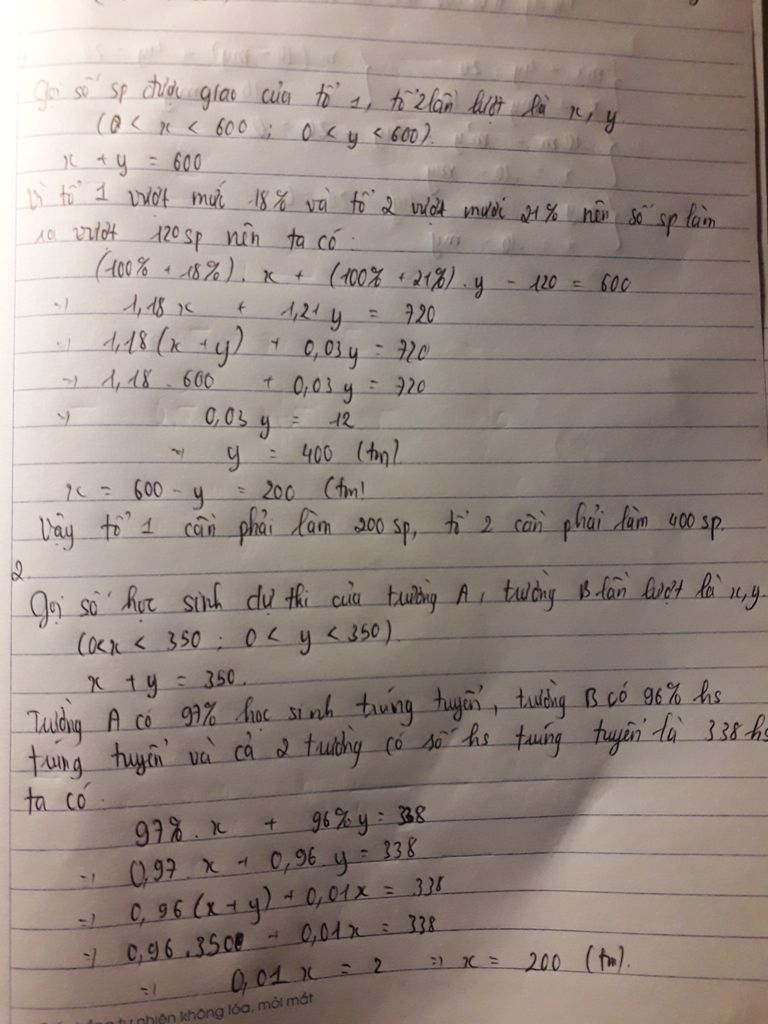 Gọi số sp được giao của tổ 1, tổ 2 lần lượt là x, y
(0 < x < 600 ; 0 < y < 600).
x + y = 600
Vì tổ 1 vượt mức 18% và tổ 2 vượt mức 21% nên số sp làm
ra vượt 120 sp nên ta có:
(100% + 18%). x + (100% + 21%). y - 120 = 600
=> 1,18 x + 1,21 y = 720
=> 1,18 (x + y) + 0,03 y = 720
=> 1,18 . 600 + 0,03 y = 720
=> 0,03 y = 12
=> y = 400 (tm)
x = 600 - y = 200 (tm)
Vậy tổ 1 cần phải làm 200 sp, tổ 2 cần phải làm 400 sp.
2.
Gọi số học sinh dự thi của trường A, trường B lần lượt là x, y.
(0<x < 350 ; 0 < y < 350).
x + y = 350.
Trường A có 97% học sinh trúng tuyển, trường B có 96% hs
trúng tuyển và cả 2 trường có số hs trúng tuyển là 338 hs
ta có.
97%. x + 96% y = 338
=> 0,97 x + 0,96 y = 338
=> 0,96 (x + y) + 0,01x = 338
=> 0,96 . 350 + 0,01x = 338
=> 0,01 x = 2 => x = 200 (tm).
tự nhiên không lóa, mỏi mắt